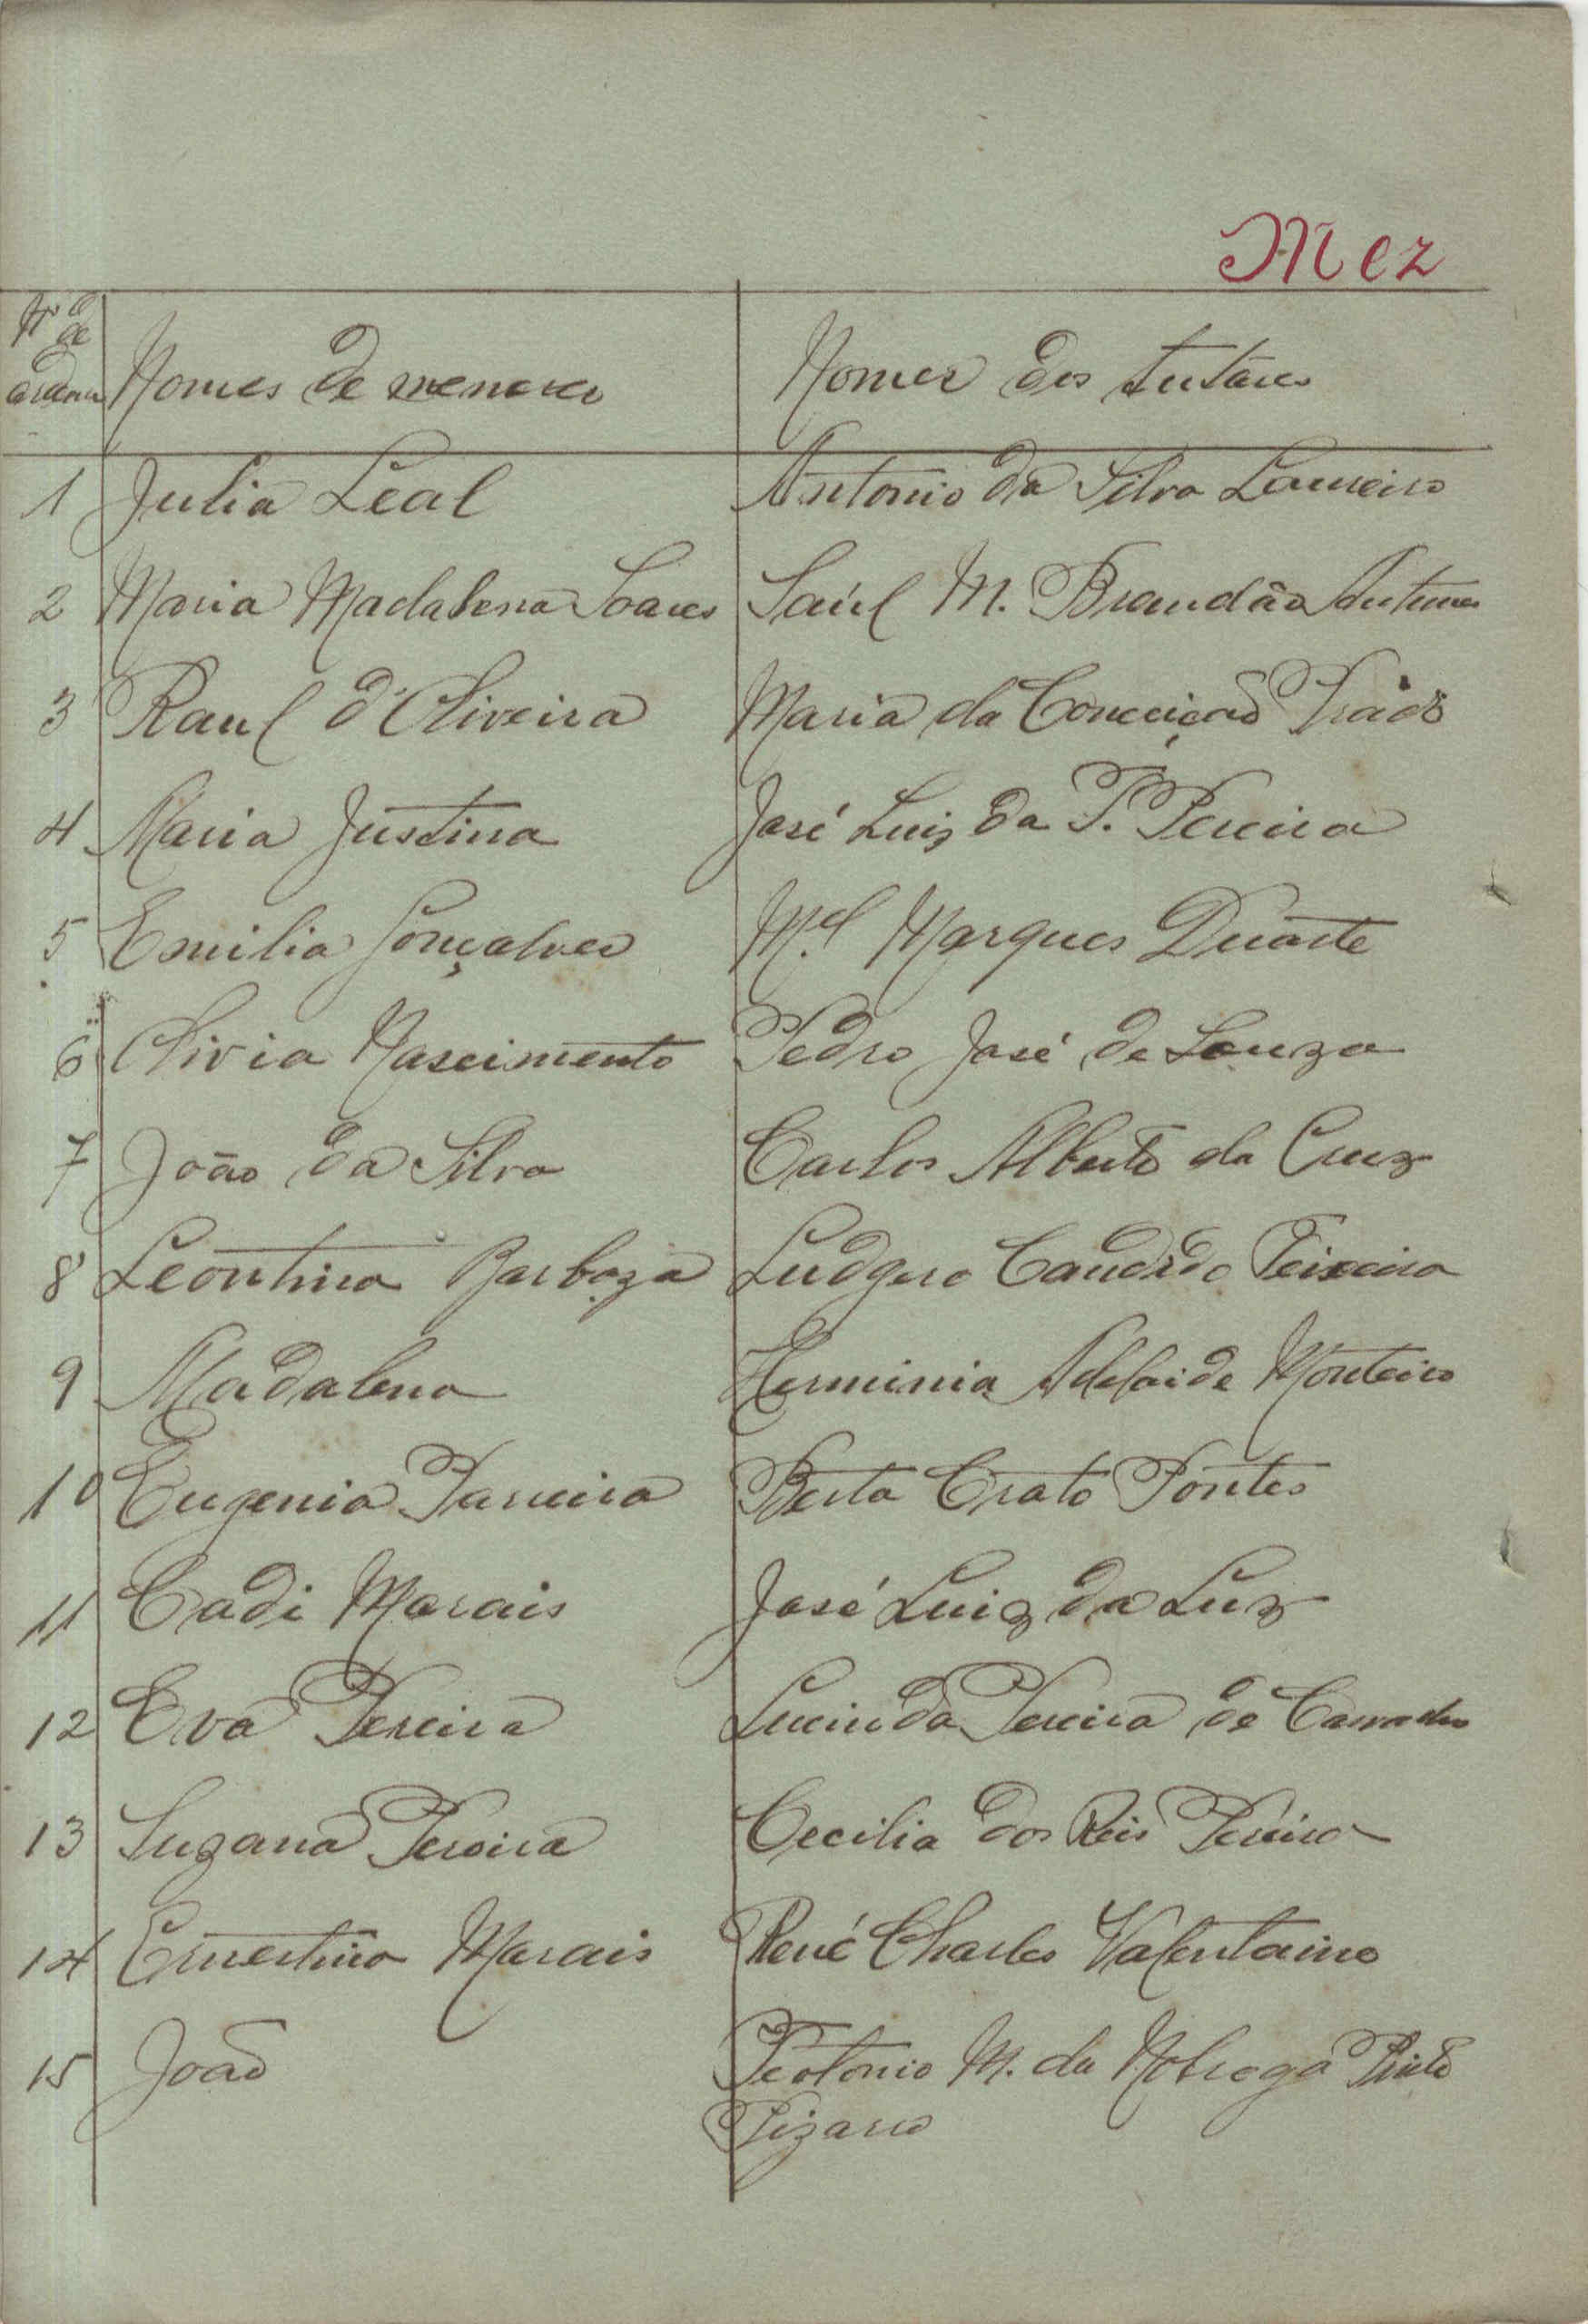 Mez
Nº de ordem Nomes de menores Nomes dos tutores
1 Julia Leal Antonio da Silva Loureiro
2 Maria Madalena Soares Saúl M. Brandão Antunes
3 Raul d'Oliveira Maria da Conceição
4 Maria Justina José Luiz da S. Pereira
5 Emilia Gonçalves M.el Marques Duarte
6 Olivia Nascimento Pedro José de Souza
7 João da Silva Carlos Alberto da Cruz
8 Leontina Barboza Ludgero Candido Teixeira
9 Madalena Herminia Adelaide Monteiro
10 Eugenia Parreira Berta Crato Fontes
11 Cadi Morais José Luiz da Luz
12 Eva Pereira Lucinda Pereira de
13 Suzana Pereira Cecilia dos Reis Pereira
14 Ernestina Morais René Charles Valentaine
15 João Teotonio M. da Nobrega Pinto
Pizarro